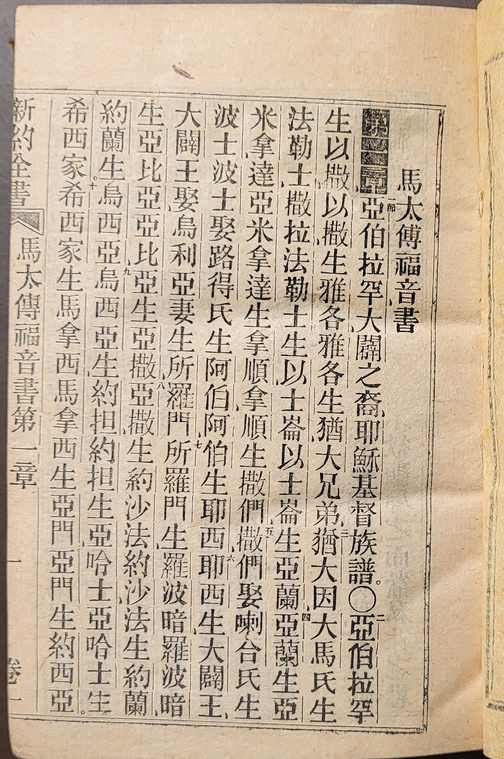 馬太傳福音書
第一章一節亞伯拉罕大闢之裔耶穌基督族譜〇二亞伯拉罕
生以撒以撒生雅各雅各生猶大兄弟三猶大因大馬氏生
法勒士撒拉法勒士生以士崙以士崙生亞蘭四亞蘭生亞
米拿達亞米拿達生拿順拿順生撒們五撒們娶喇合氏生
波士波士娶路得氏生阿伯阿伯生耶西六耶西生大闢王
大闢王娶烏利亞妻生所羅門七所羅門生羅波暗羅波暗
生亞比亞亞比亞生亞撒八亞撒生約沙法約沙法生約蘭
約蘭生烏西亞九烏西亞生約担約担生亞哈士亞哈士生
希西家十希西家生馬拿西馬拿西生亞門亞門生約西亞
新約全書 馬太傳福音書第一章 一 卷一